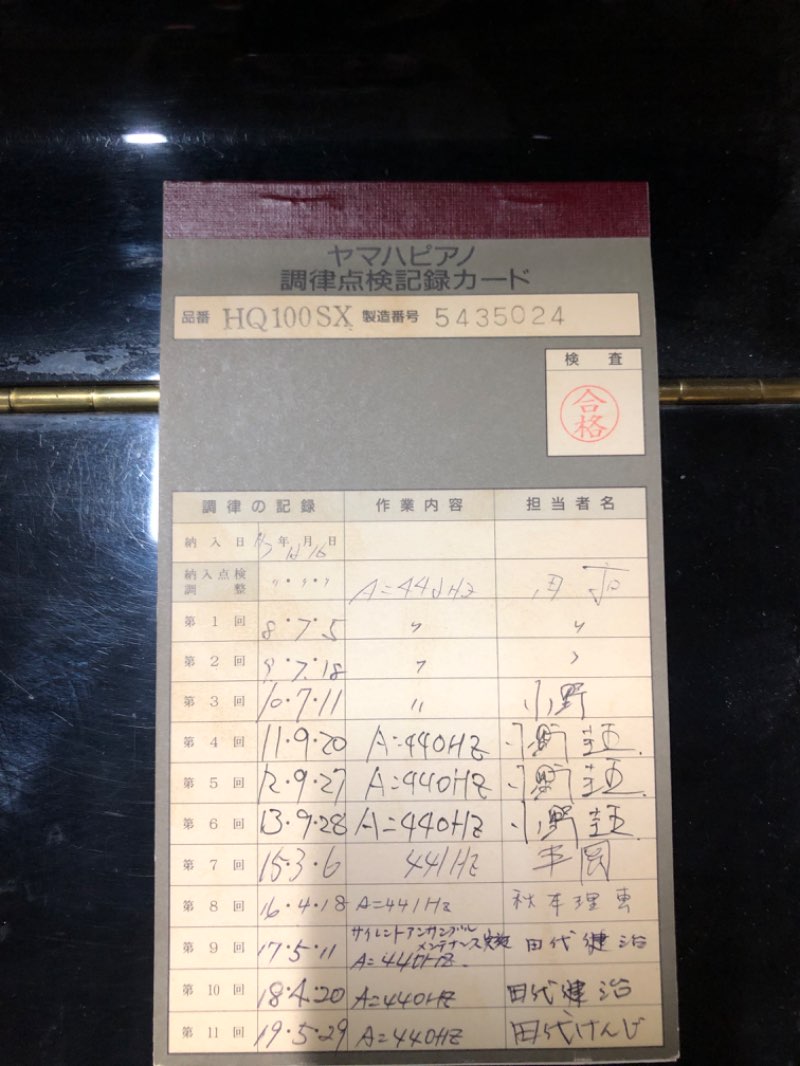 ヤマハピアノ
調律点検記録カード
品番 HQ100SX 製造番号 5435024
検査
合格
調律の記録 作業内容 担当者名
納入日 年 月 16日
納入点検調整 〃・〃・〃 A=440HZ
第1回 8・7・5 〃 〃
第2回 9・7・18 〃 〃
第3回 10・7・11 〃 小野
第4回 11・9・20 A=440HZ 小野
第5回 12・9・27 A=440HZ 小野
第6回 13・9・28 A=440HZ 小野
第7回 15・3・6 441HZ 平岡
第8回 16・4・18 A=441HZ 秋本理
第9回 17・5・11 サイレントアンサンブルメンテナンス実施 A=440HZ. 田代健治
第10回 18・4・20 A=440HZ 田代健治
第11回 19・5・29 A=440HZ 田代けんじ